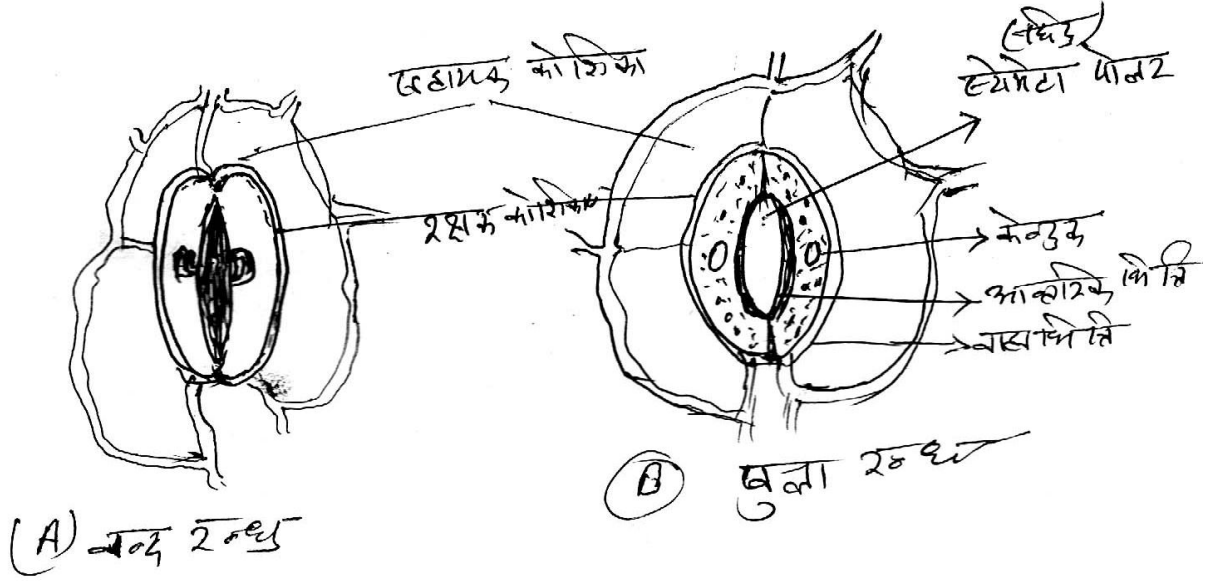 सहायक कोशिका
रक्षक कोशिका
केन्द्रक
आन्तरिक भित्ति
बाह्य भित्ति
(A) बन्द रन्ध्र
(B) खुला रन्ध्र